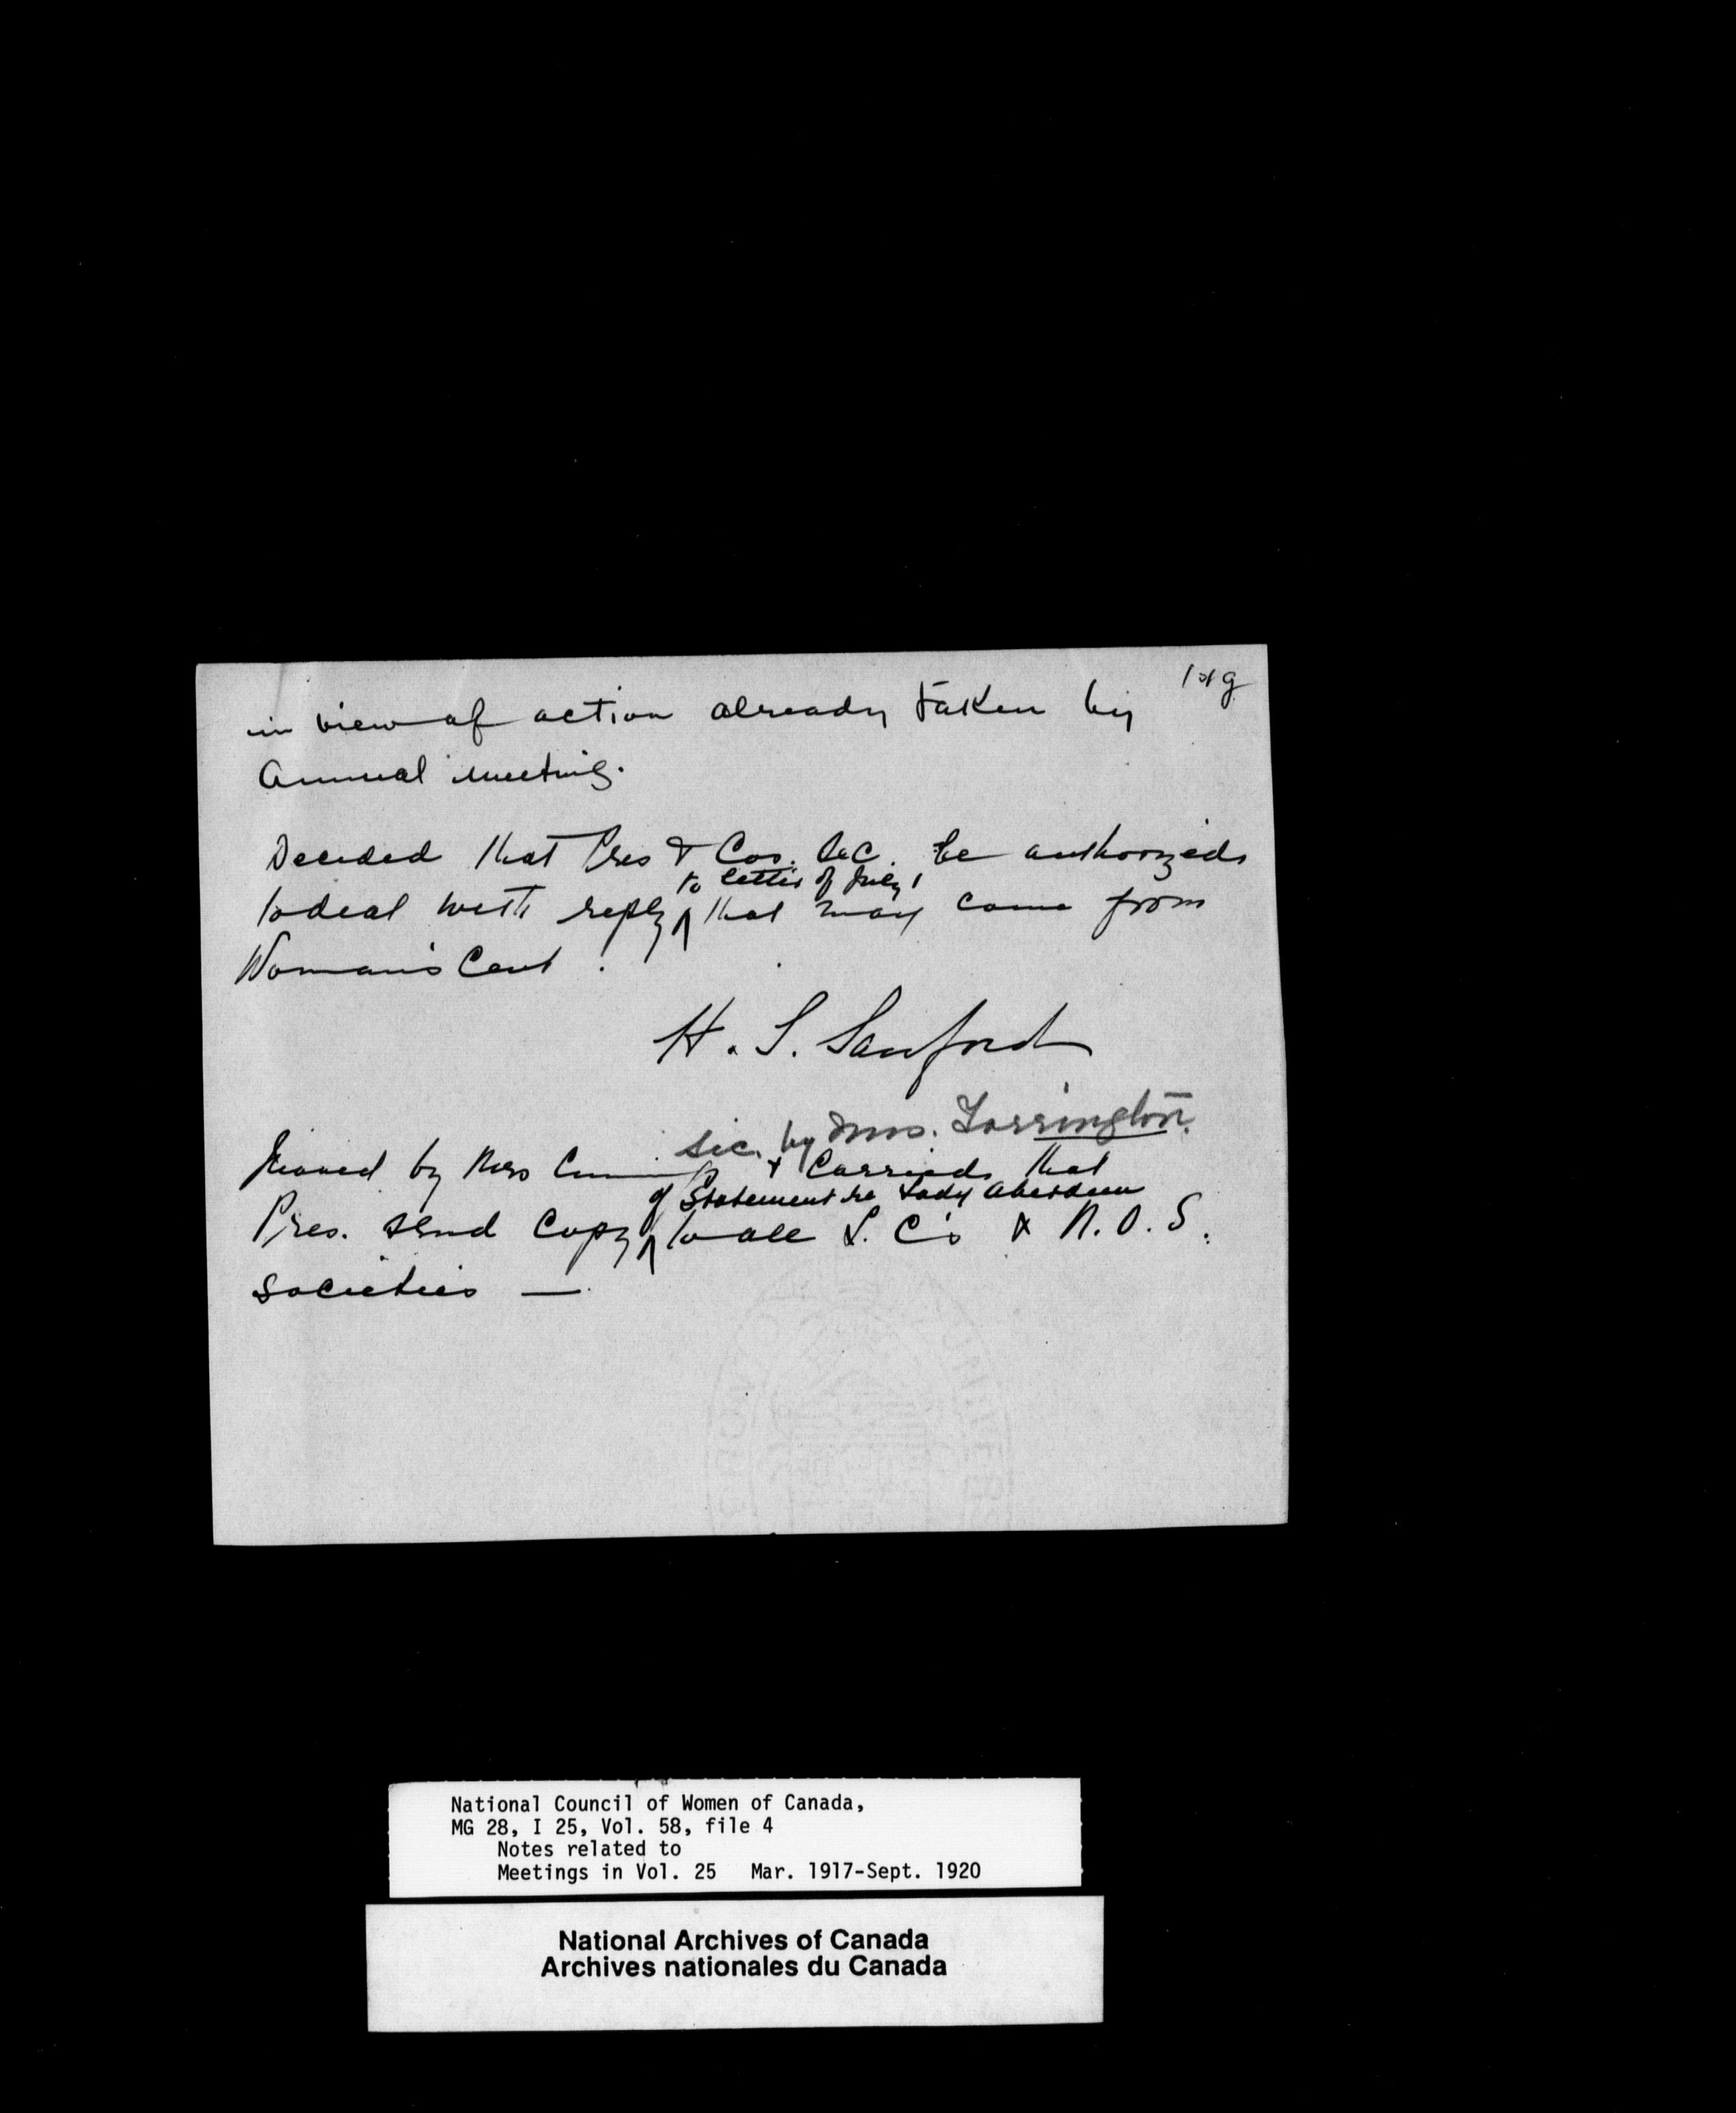 in view of action already taken by
Annual meeting.
Decided that Pres & Cor. Sec. be authorized
to letter of July 1
to deal with reply ^ that may come from
Woman's Cent.
H. S. Sanford
sec. by Mrs. Torrington.
Moved by Mrs & Carried that
of Statement re Lady Aberdeen
Pres. send copy ^ to all L. C's & N. O. S.
Societies —
National Council of Women of Canada,
MG 28, I 25, Vol. 58, file 4
Notes related to
Meetings in Vol. 25 Mar. 1917-Sept. 1920
National Archives of Canada
Archives nationales du Canada